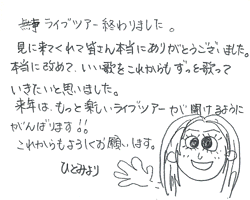 無事 ライブツアー終わりました。
見に来てくれて皆さん本当にありがとうございました。
本当に改めて、いい歌をこれからもずっと歌って
いきたいと思いました。
来年は、もっと楽しいライブツアーが開けるように
がんばります!!
これからもよろしくお願いします。
ひとみより